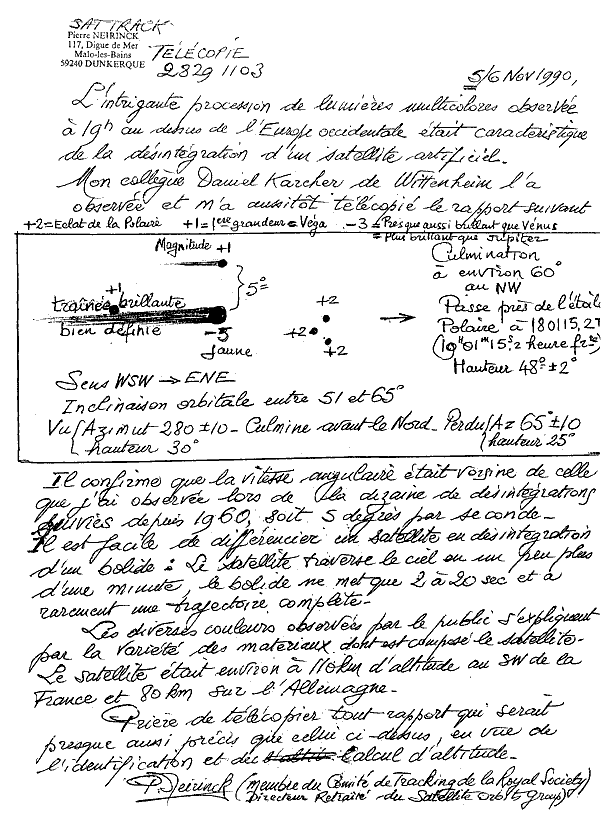 SATTRACK
Pierre NEIRINCK
117, Digue de Mer
Malo-les-Bains
59240 DUNKERQUE
TÉLÉCOPIE
2829 1103
5/6 Nov 1990,
L'intrigante procession de lumières multicolores observée
à 19h au dessus de l'Europe occidentale était caractéristique
de la désintégration d'un satellite artificiel.
Mon collègue Daniel Karcher de Wittenheim l'a
observée et m'a aussitôt télécopié le rapport suivant
+2=Eclat de la Polaire +1=1ère grandeur=Véga -3=Presque aussi brillant que Vénus
=Plus brillant que Jupiter
Magnitude +1
5°
+1
traînée brillante
bien définie
-3
Jaune
+2
+2
+2
Culmination
à environ 60°
au NW
Passe près de l'étoile
Polaire à 180115,2T
(19H 01m 15s,2 heure frse)
Hauteur 48°±2°
Sens WSW → ENE
Inclinaison orbitale entre 51 et 65°
Vu { Azimut 280±10 - Culmine avant le Nord - Perdu { Az 65°±10
hauteur 30° hauteur 25°
Il confirme que la vitesse angulaire était voisine de celle
que j'ai observée lors de la dizaine de désintégrations
suivies depuis 1960, soit 5 degrés par seconde.
Il est facile de différencier un satellite en désintégration
d'un bolide : Le satellite traverse le ciel en un peu plus
d'une minute, le bolide ne met que 2 à 20 sec et a
rarement une trajectoire complète.
Les diverses couleurs observées par le public s'expliquent
par la variété des materiaux dont est composé le satellite.
Le satellite était environ à 110km d'altitude au SW de la
France et 80km sur l'Allemagne.
Prière de télécopier tout rapport qui serait
presque aussi précis que celui ci-dessus, en vue de
l'identification et du calcul d'altitude.
P. Neirinck (membre du Comité de Tracking de la Royal Society)
Directeur Retraité du Satellite Orbits Group)